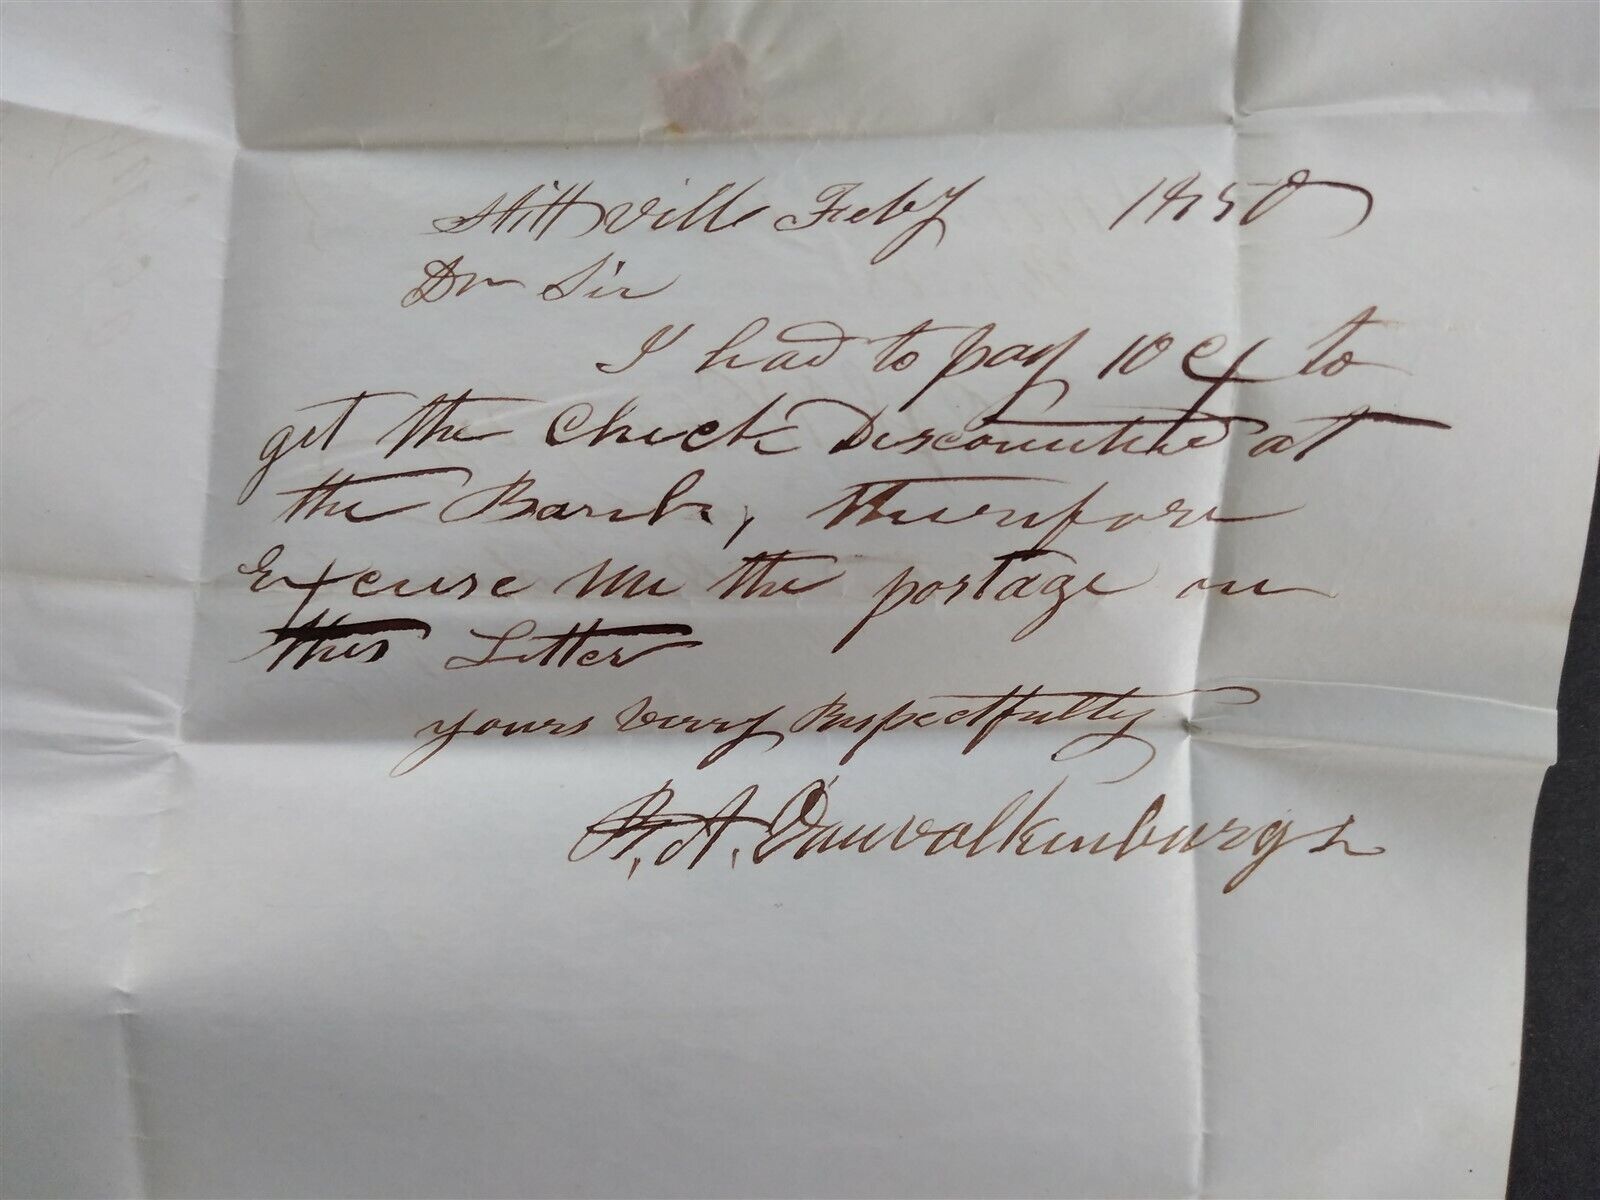 Stittville Feby 1850
Dr Sir
I had to pay 10 ct to
get the Check Discounted at
the Bank, therefore
Excuse me the postage on
this Letter
yours very Respectfully
R. A. Vanvalkenburgh